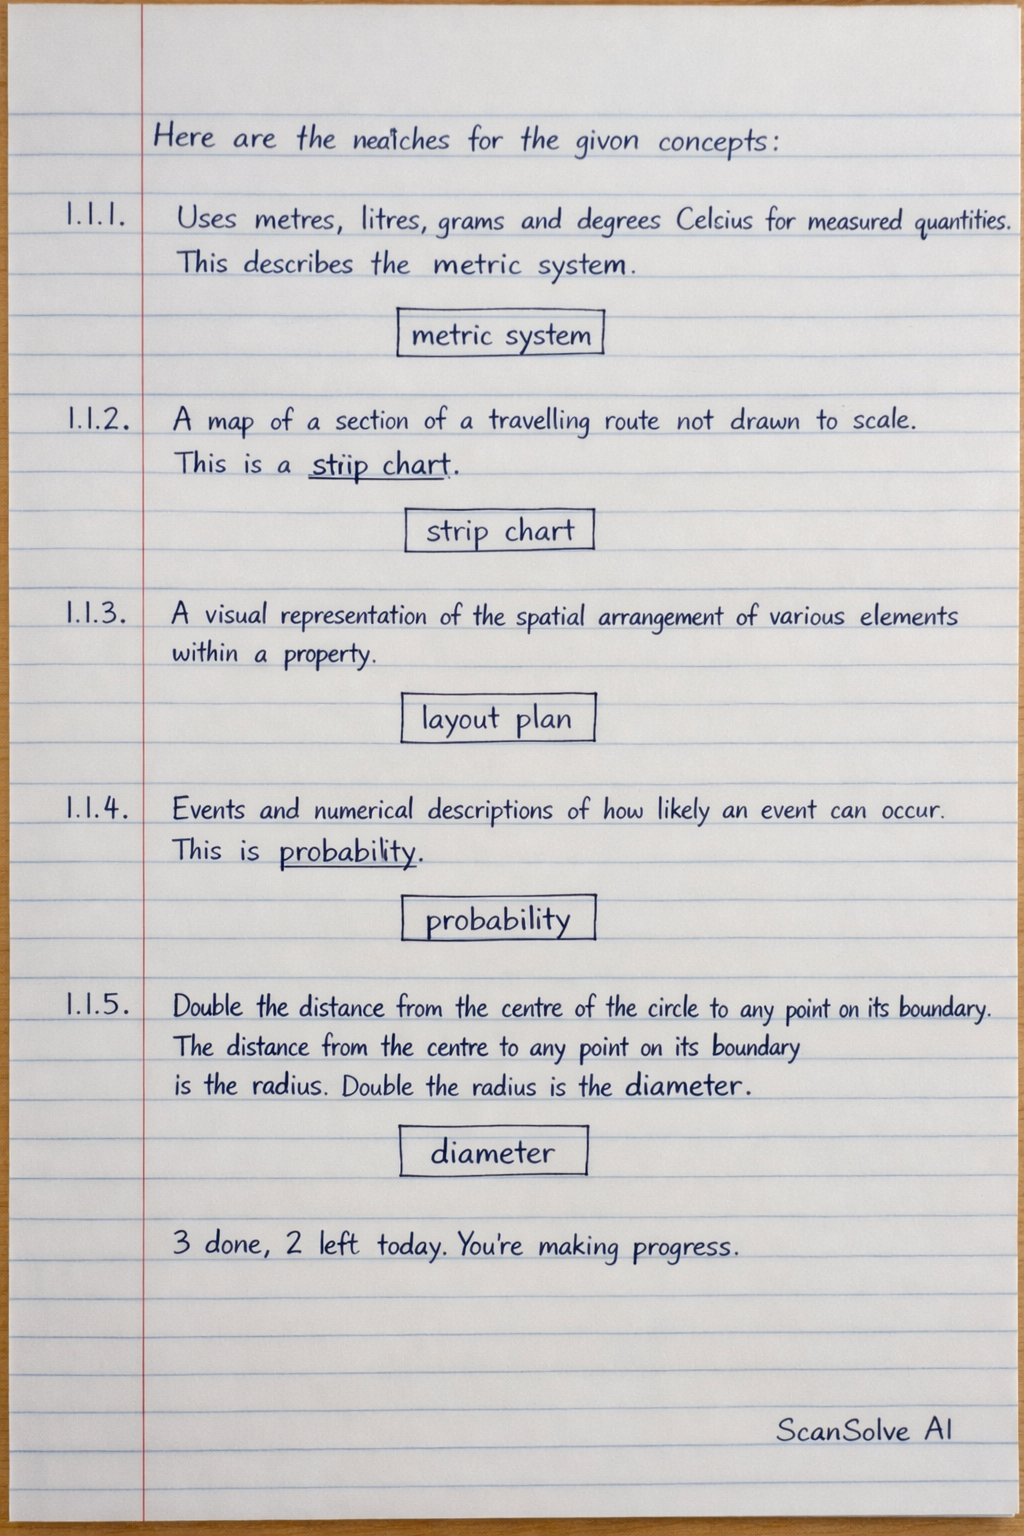 Here are the neatches for the givon concepts:
1.1.1. Uses metres, litres, grams and degrees Celsius for measured quantities.
This describes the metric system.
metric system
1.1.2. A map of a section of a travelling route not drawn to scale.
This is a strip chart.
strip chart
1.1.3. A visual representation of the spatial arrangement of various elements
within a property.
layout plan
1.1.4. Events and numerical descriptions of how likely an event can occur.
This is probability.
probability
1.1.5. Double the distance from the centre of the circle to any point on its boundary.
The distance from the centre to any point on its boundary
is the radius. Double the radius is the diameter.
diameter
3 done, 2 left today. You're making progress.
ScanSolve AI